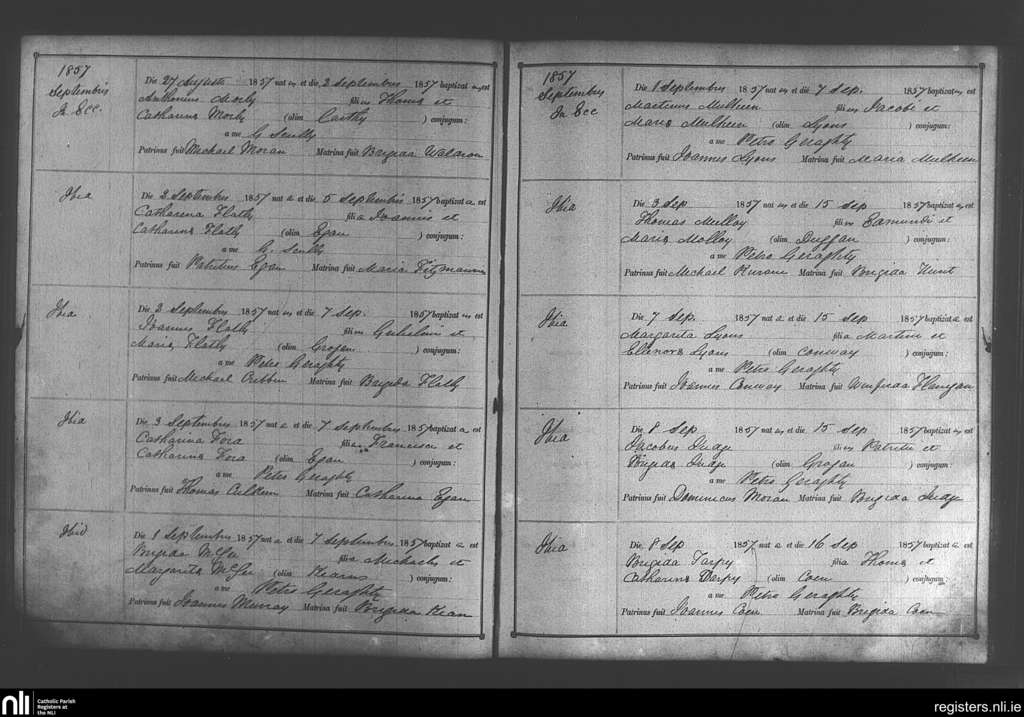 1857
Septembris
In Ecc.
Die 27 Augusti 1857 nat us et die 2 Septembris 1857 baptizat us est
Anthonius Morly fili us Thomæ et
Catharina Morly (olim Carthy ) conjugum:
a me G. Scully
Patrinus fuit Michael Moran Matrina fuit Brigida Waldron
Ibid
Die 2 Septembris 1857 nat a et die 5 Septembris 1857 baptizat a est
Catharina Flatly fili a Joannis et
Catharina Flatly (olim Egan ) conjugum:
a me G. Scully
Patrinus fuit Patritius Egan Matrina fuit Maria Fitzmaurice
Ibid
Die 2 Septembris 1857 nat us et die 7 Sep. 1857 baptizat us est
Joannes Flatly fili us Gulielmi et
Maria Flatly (olim Grogan ) conjugum:
a me Petro Geraghty
Patrinus fuit Michael Cribbin Matrina fuit Brigida Flatly
Ibid
Die 3 Septembris 1857 nat a et die 7 Septembris 1857 baptizat a est
Catharina Fora fili a Francisci et
Catharina Fora (olim Egan ) conjugum:
a me Petro Geraghty
Patrinus fuit Thomas Culkeen Matrina fuit Catharina Egan
Ibid
Die 1 Septembris 1857 nat a et die 7 Septembris 1857 baptizat a est
Brigida McGee fili a Michaelis et
Margarita McGee (olim Kearns ) conjugum:
a me Petro Geraghty
Patrinus fuit Joannes Murray Matrina fuit Brigida Kean
1857
Septembris
In Ecc
Die 1 Septembris 1857 nat us et die 7 Sep. 1857 baptizat us est
Martinus Mulheen fili us Jacobi et
Maria Mulheen (olim Lyons ) conjugum:
a me Petro Geraghty
Patrinus fuit Joannes Lyons Matrina fuit Maria Mulheen
Ibid
Die 3 Sep 1857 nat us et die 15 Sep 1857 baptizat us est
Thomas Mulloy fili us Edmundi et
Maria Molloy (olim Duffan ) conjugum:
a me Petro Geraghty
Patrinus fuit Michael Matrina fuit Brigida Hunt
Ibid
Die 7 Sep. 1857 nat a et die 15 Sep 1857 baptizat a est
Margarita Lyons fili a Martini et
Ellenora Lyons (olim Conway ) conjugum:
a me Petro Geraghty
Patrinus fuit Joannes Conway Matrina fuit Winifrida Flanigan
Ibid
Die 8 Sep 1857 nat us et die 15 Sep 1857 baptizat us est
Jacobus Judge fili us Patritii et
Brigida Judge (olim Grogan ) conjugum:
a me Petro Geraghty
Patrinus fuit Dominicus Moran Matrina fuit Brigida Judge
Ibid
Die 8 Sep 1857 nat a et die 16 Sep 1857 baptizat a est
Brigida Tarpy fili a Thomæ et
Catharina Darpy (olim Coen ) conjugum
a me Petro Geraghty
Patrinus fuit Joannes Coen Matrina fuit Brigida Coen
nli Catholic Parish
Registers at
the NLI
registers.nli.ie